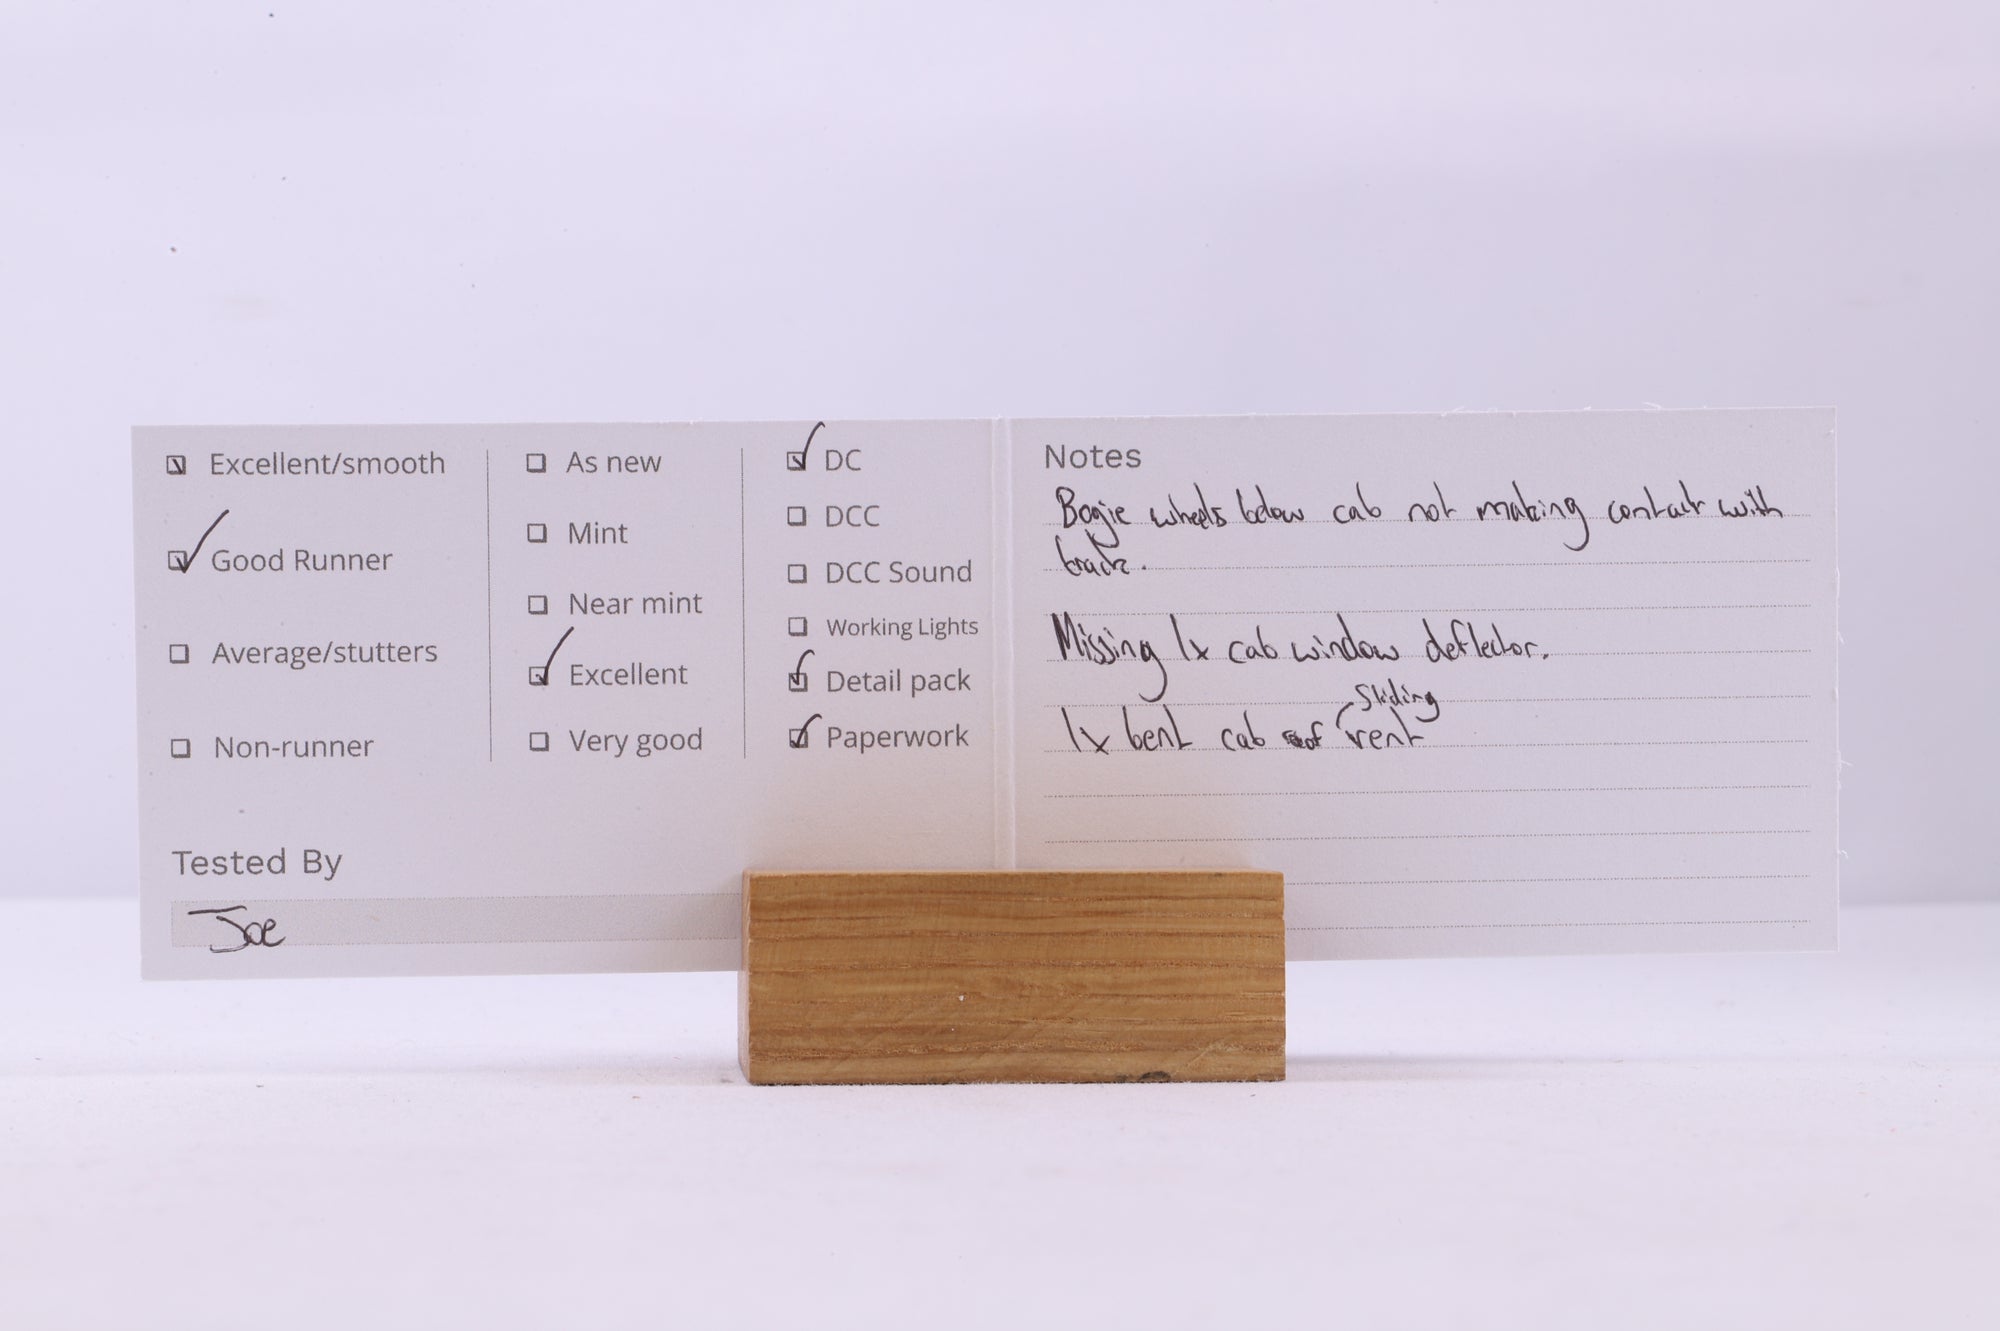 Excellent/smooth
Good Runner
Average/stutters
Non-runner
As new
Mint
Near mint
Excellent
Very good
DC
DCC
DCC Sound
Working Lights
Detail pack
Paperwork
Tested By
Joe
Notes
Bogie wheels below cab not making contact with
track.
Missing 1x cab window deflector.
sliding
1x bent cab roof vent